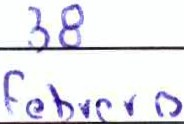 38
Febrero